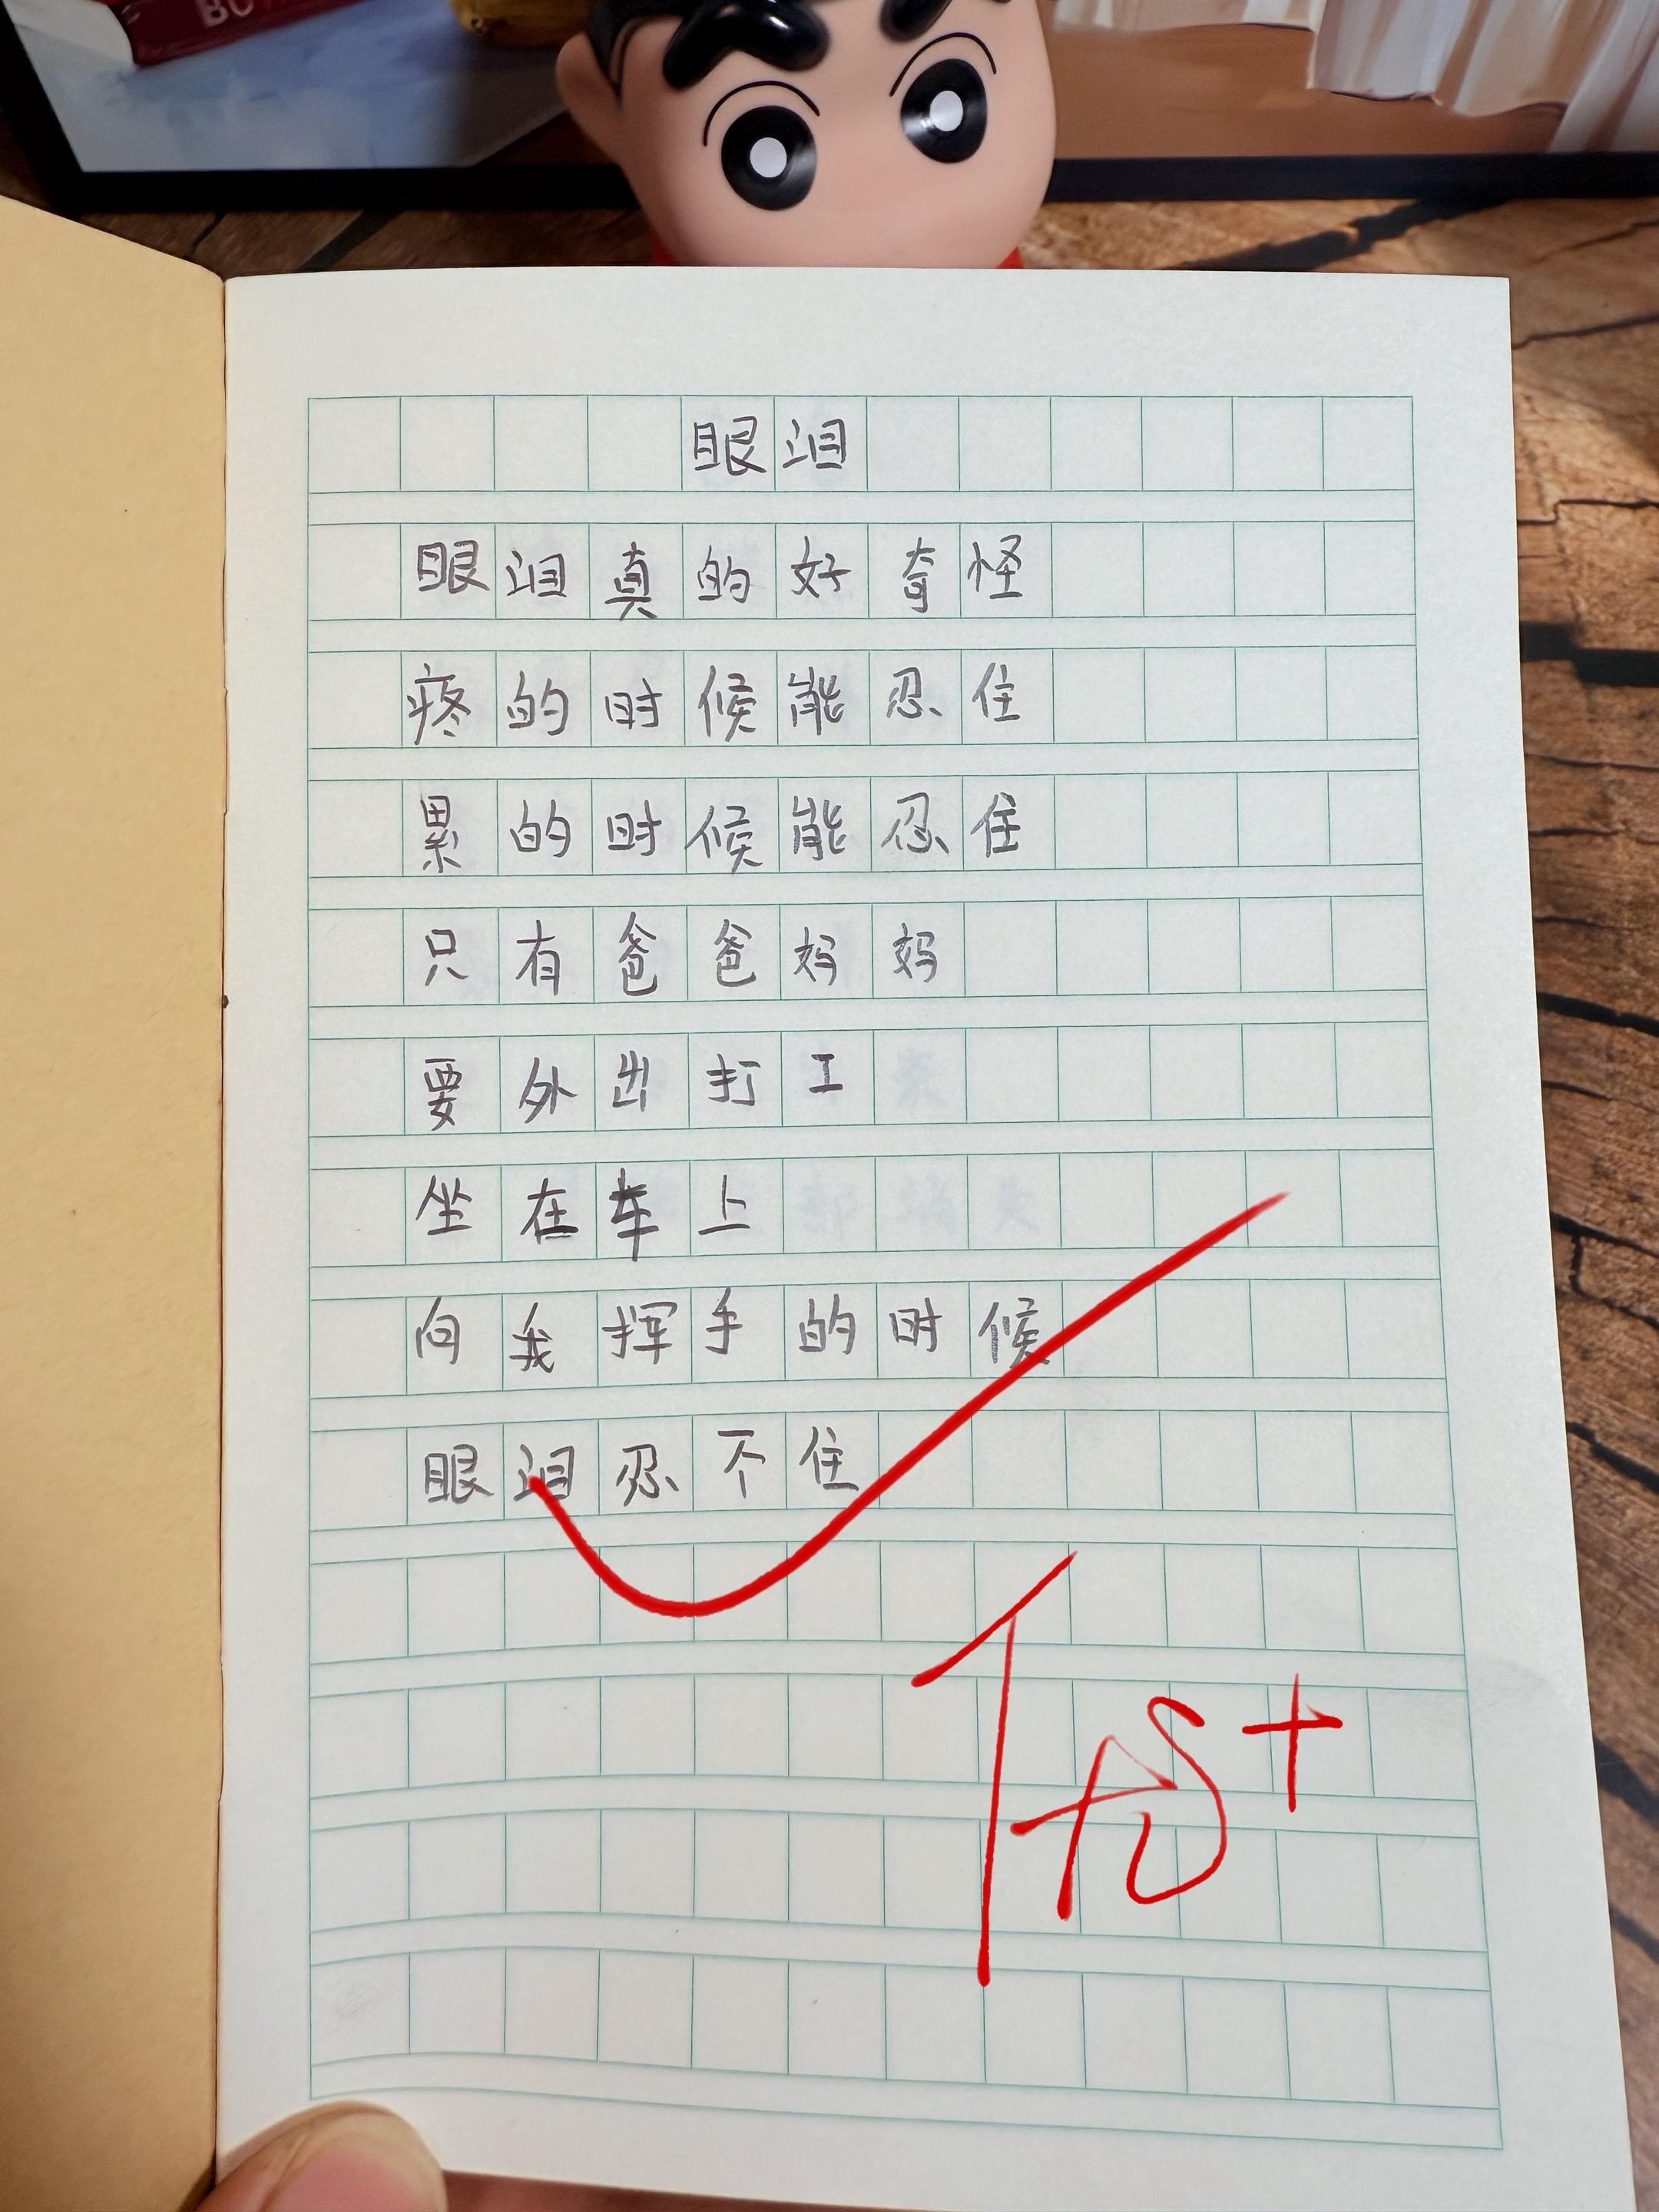 眼泪
眼泪真的好奇怪
疼的时候能忍住
累的时候能忍住
只有爸爸妈妈
要外出打工
坐在车上
向我挥手的时候
眼泪忍不住